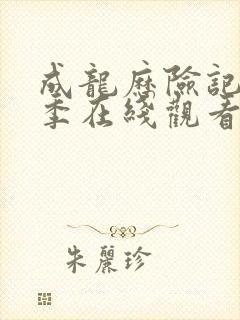 成龍歷險記
季在綫觀看
朱麗珍